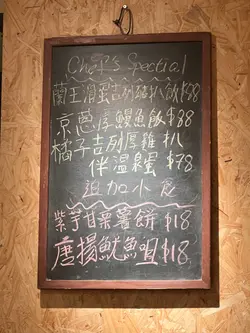 Chef's Special
蘭王滑蛋吉列豬扒飯 $98
京蔥厚鰻魚飯 $88
橘子吉列厚雞扒
伴溫泉蛋 $78
追加小食
紫芋甘栗薯餅 $18
唐揚魷魚𩓥 $18